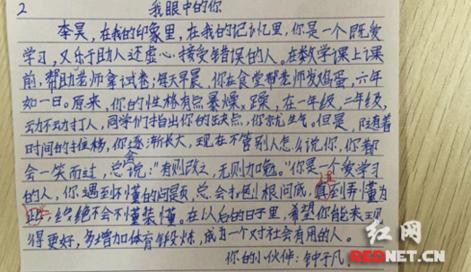 2
我眼中的你
李昊，在我的印象里，在我的记忆里，你是一个既爱
学习，又乐于助人还虚心接受错误的人。在数学课上课
前，帮助老师拿试卷；每天早晨，你在食堂帮老师发鸡蛋，六年
如一日。原来，你的性格有点暴燥躁，在一年级，二年级，
动不动打人，同学们指出你的缺点，你就生气。但是，随着
时间的推移，你逐渐长大，现在不管别人怎么说你，你都
会一笑而过，总会说："有则改之，无则加勉。"你是一个爱学习
的人，你遇到不懂的问题，总会打刨根问底，直到弄懂为
止，绝不会不懂装懂，在以后的日子里，希望你能表现
得更好，多增加体育锻炼，成为一个对社会有用的人。
你的小伙伴：钟于凡
红网
REDNET.CN